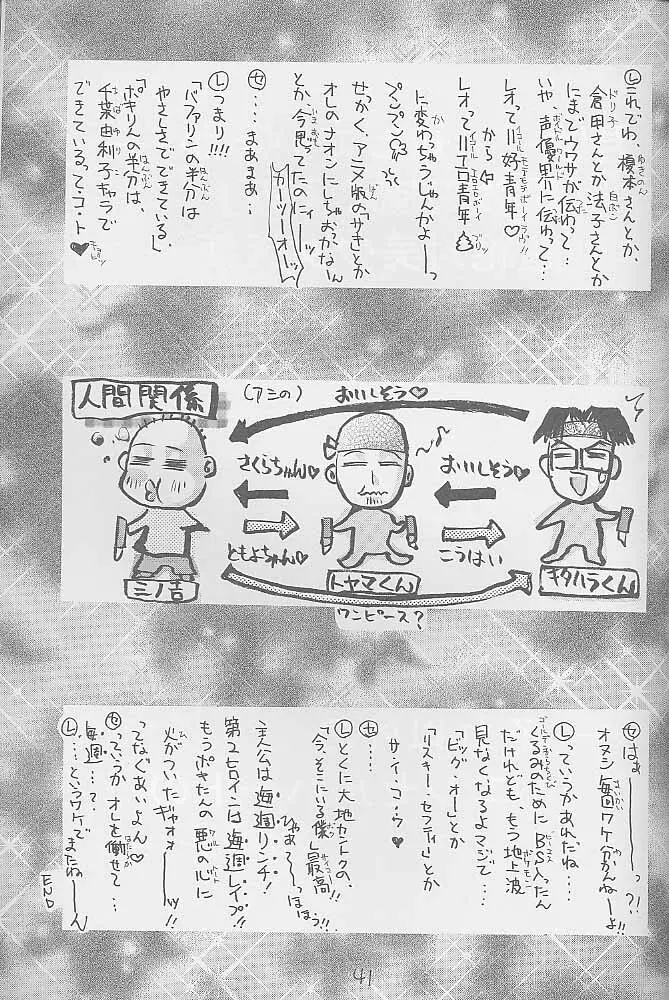 Ⓛこれでわ、榎本さんとか、
ゆきのん
倉田さんとか法子さんとか
ドリ子
白ぼこ
にまでウワサが伝わって…
いや、声優界に伝わって…
レオって＝好青年♡
から
レオって＝エロ青年
に変わっちゃうじゃんかよーーっ
プンプン
せっかく、アニメ版の「さき」とか
オレのナオンにしちゃおっかなん
とか今思ってたのにィーーッ
カーッツーオーーッ
㋝…まあまあ…
Ⓛつまり!!!
「バファリンの半分は
はんぶん
やさしさでできている」
「ポキりんの半分は、
はんぶん
千葉由利子キャラで
ちばゆりこ
できている」ってコ・ト♥
人間関係
(アシの)
おいしそう♡
さくらちゃん♡
おいしそう♡
ともよちゃん♡
こうはい
ミノ吉
トヤマくん
キタハラくん
ワンピース?
㋝はぁーーーーっ?!
オヌシ毎回ワケ分かんねーよ!!
まいかい
Ⓛっていうかあれだね…
くるみのためにBS入ったん
だけれども、もう地上波
見なくなるよマジで…
「ビッグ・オー」とか
「リスキー・セフティ」とか
サ・イ・コ・ウ♥
㋝……
Ⓛとくに大地セントクの、
「今、そこにいる僕」最高!!
サイコー
ひゃあて〜っほほう!!
主人公は毎週リンチ!
第2ヒロインは毎週レイプ!!
もうポキたんの悪の心に
火がついたギャオォーーッ!!
ってなぐあいよん♡
㋝っていうかオレを働せて…
はたらか
毎週…?
Ⓛ…というワケでまたねーーん
END
41